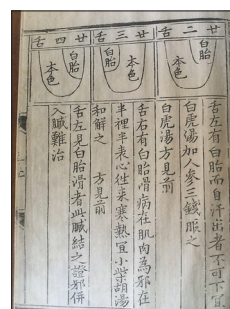 廿二舌
白胎
本色
舌左有白胎而自汗出者不可下宜
白虎湯加人參三錢服之
白虎湯方見前
廿三舌
白胎
本色
舌右有白胎滑病在肌肉為邪在
半裡半表必徃來寒熱宜小柴胡湯
和解之 方見前
廿四舌
白胎
本色
舌左見白胎滑者此臟結之證邪併
入臟難治